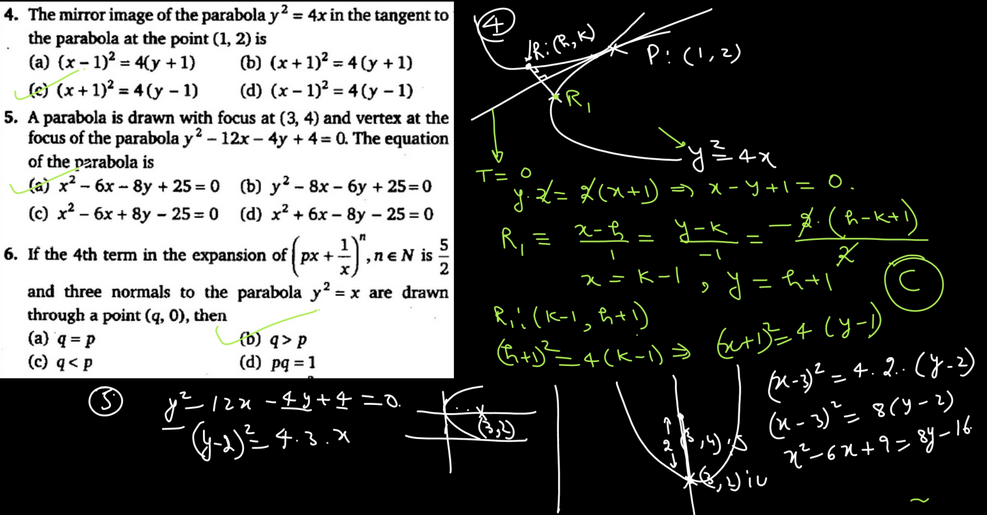 4. The mirror image of the parabola y² = 4x in the tangent to
the parabola at the point (1, 2) is
(a) (x – 1)² = 4(y + 1) (b) (x + 1)² = 4 (y + 1)
(c) (x + 1)² = 4 (y – 1) (d) (x – 1)² = 4 (y – 1)
5. A parabola is drawn with focus at (3, 4) and vertex at the
focus of the parabola y² – 12x – 4y + 4 = 0. The equation
of the parabola is
(a) x² – 6x – 8y + 25 = 0 (b) y² – 8x – 6y + 25 = 0
(c) x² – 6x + 8y – 25 = 0 (d) x² + 6x – 8y – 25 = 0
6. If the 4th term in the expansion of (px + 1/x)ⁿ, n ∈ N is 5/2
and three normals to the parabola y² = x are drawn
through a point (q, 0), then
(a) q = p (b) q > p
(c) q < p (d) pq = 1
4
R:(h,k)
P: (1,2)
R₁
y² = 4x
T = 0
y.2 = 2(x+1) ⇒ x – y + 1 = 0.
R₁ ≡ x-h/1 = y-k/-1 = -2.(h-k+1)/2
x = k-1 , y = h+1
C
R₁: (k-1, h+1)
(h+1)² = 4(k-1) ⇒ (x+1)² = 4(y-1)
5
y² – 12x – 4y + 4 = 0.
(y-2)² = 4.3.x
(3,2)
2
(3,4):S
(3,2)
(x-3)² = 4.2.(y-2)
(x-3)² = 8(y-2)
x² – 6x + 9 = 8y – 16
~